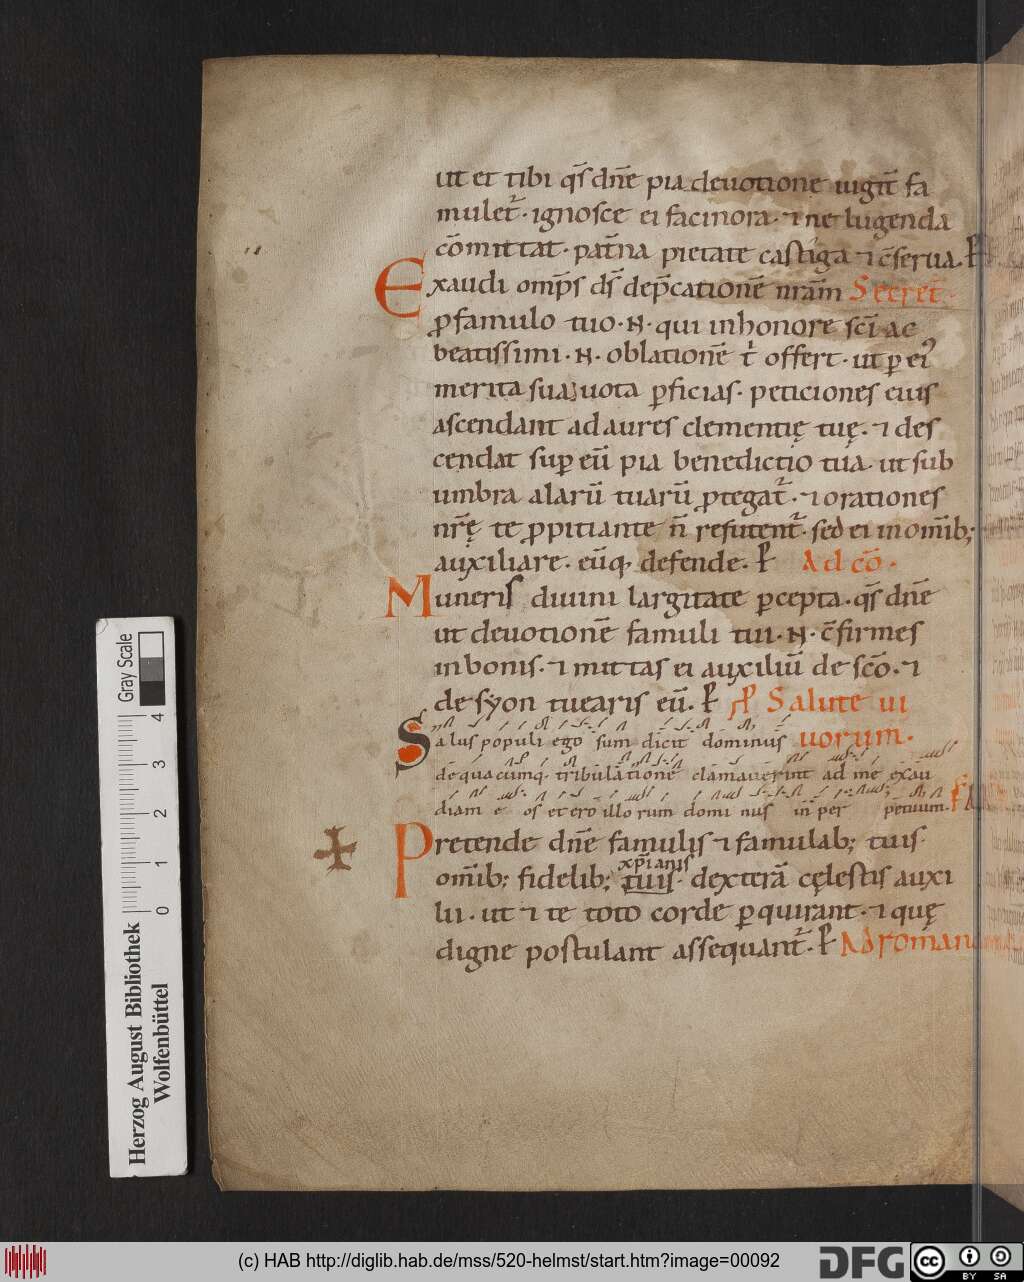 ut et tibi q̄s dn̄e pia deuotione uigit̄ fa
mulet᷑ · ignosce ei facinora · ⁊ ne lugenda
cōmittat · pat̄na pietate castiga ⁊ c̄serua · ꝑ
Exaudi omp̄s ds̄ dep̄cationē nr̄am Secret̄ ·
ꝓ famulo tuo · N · qui in honore sc̄i ac
beatissimi · N · oblationē t͛ offert · ut ꝑ ei᷒
merita sua uota ꝑficias · peticiones eius
ascendant ad aures clementię tuę · ⁊ des
cendat suꝑ eū pia benedictio tua · ut sub
umbra alarū tuarū ꝓtegat᷑ · ⁊ orationes
nr̄ę te ꝓpitiante n̄ refutent᷑ · sed ei in om̄ib;
auxiliare · eūq; defende · ꝑ Ad cō ·
Muneris diuini largitate ꝑcepta · q̄s dn̄e
ut deuotionē famuli tui · N · c̄firmes
in bonis · ⁊ mittas ei auxiliū de sc̄o · ⁊
de syon tuearis eū · ꝑ Salute ui
Salus populi ego sum dicit dominus uorum ·
de quacumq; tribulatione clamauerint ad me exau
diam e os et ero illorum domi nus in per petuum ·
Pretende dn̄e famulis ⁊ famulab; tuis ·
xp̄ianis
om̄ib; fidelib; tuis · dexterā cęlestis auxi
lii · ut ⁊ te toto corde ꝑquirant · ⁊ quę
digne postulant assequant᷑ · ꝑ Ad roman
Gray Scale
4
3
2
1
0
Herzog August Bibliothek
Wolfenbüttel
(c) HAB http://diglib.hab.de/mss/520-helmst/start.htm?image=00092
DFG
cc
BY SA